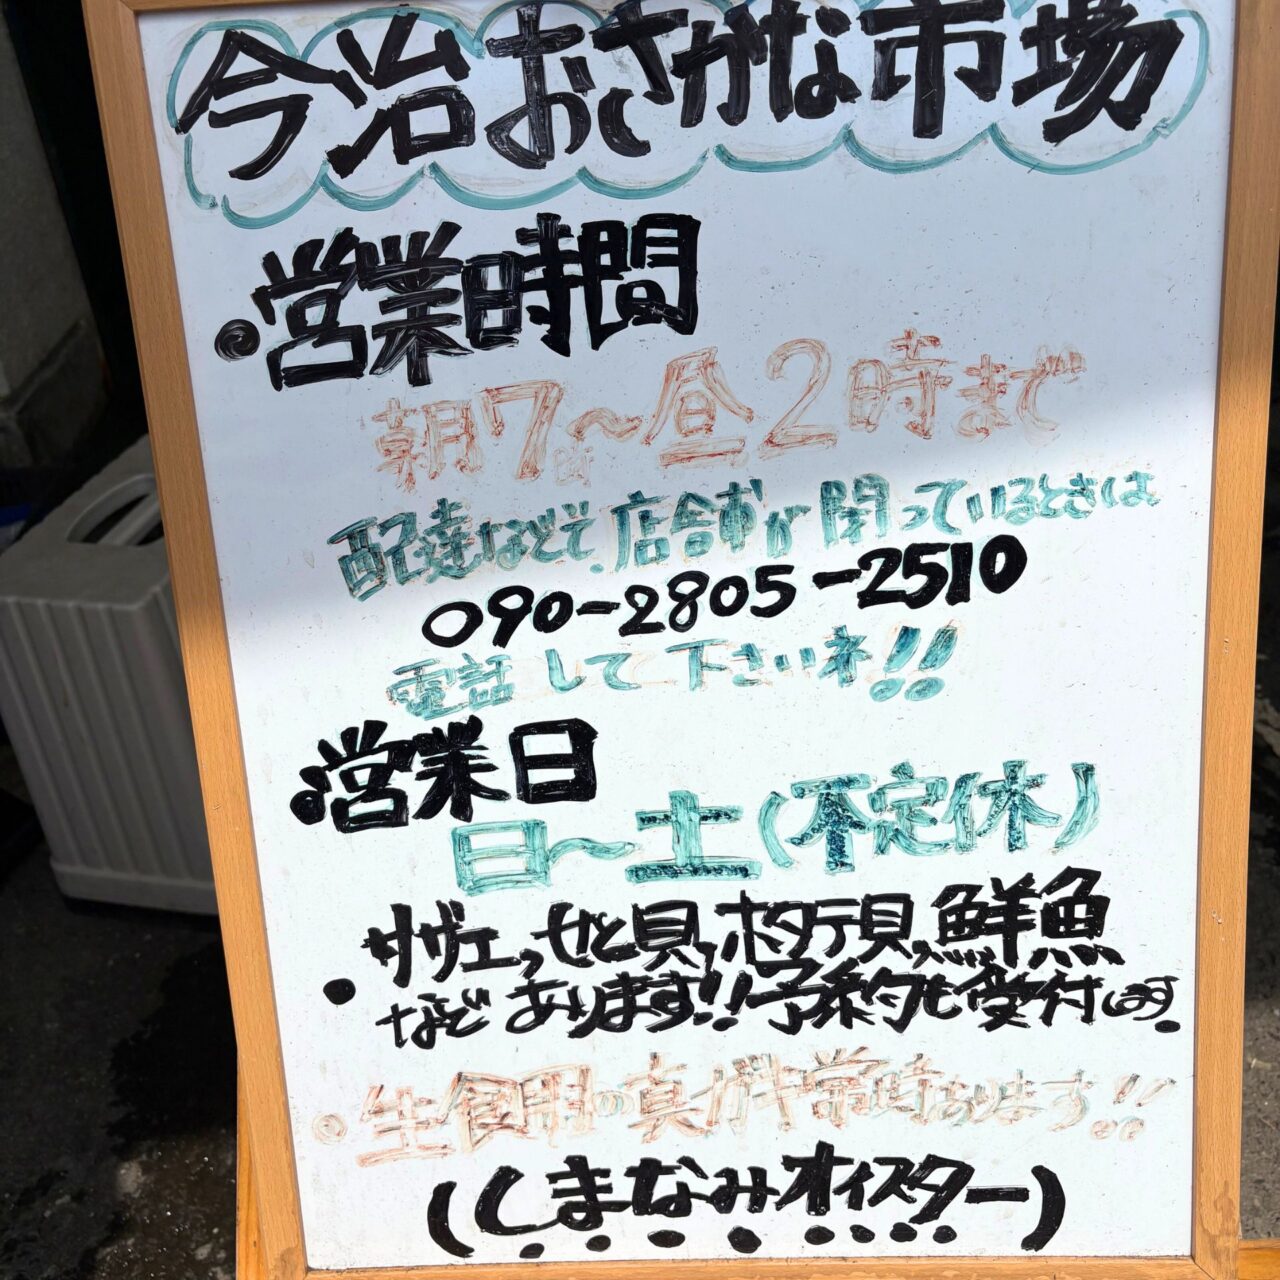 今治おさかな市場
営業時間
朝7時〜昼2時まで
配達などで、店舗が閉っているときは
090-2805-2510
電話して下さいネ!!
営業日
日〜土(不定休)
・サザエ、せと貝、ホタテ貝、鮮魚
などあります!!予約も受付します。
・生食用の真ガキ常時あります!!
(しまなみオイスター)